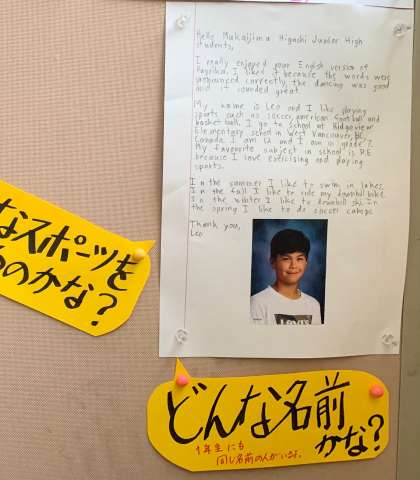 Hello Mukaijima Higashi Junior High
students,
I really enjoyed your English version of
I liked it because the words were
pronounced correctly, the dancing was good
and it sounded great.
My name is Leo and I like playing
sports such as soccer, american football and
basketball. I go to school at Ridgeview
Elementary school in West Vancouver, BC,
Canada. I am 12 and I am in grade 7.
My favourite subject in school is P.E
because I love exercising and playing
sports.
In the summer I like to swim in lakes.
In the fall I like to ride my downhill bike.
In the winter I like to downhill ski. In
the spring I like to do soccer camps.
Thank you,
Leo
なスポーツを
のかな?
どんな名前
かな?
1年生にも
同じ名前の人がいるよ。